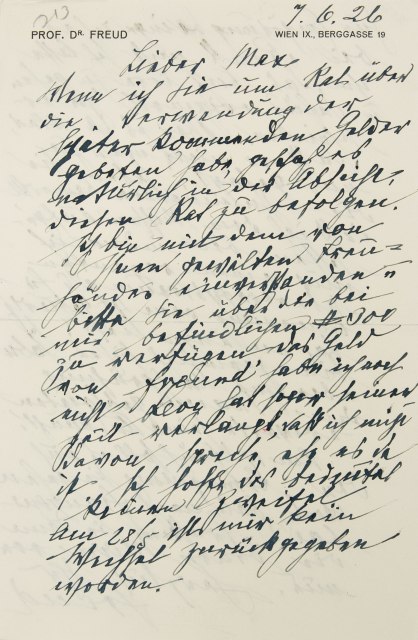 7.6.26
PROF. DR. FREUD
WIEN IX., BERGGASSE 19
Lieber Max
Wenn ich Sie um Rat über
die Verwendung der
später kommenden Gelder
gebeten habe, geschah es
natürlich in der Absicht,
diesen Rat zu befolgen.
Ich bin mit dem von
Ihnen gewählten
einverstanden
bitte Sie über die bei
mir befindlichen $ 300
zu verfügen. Das Geld
von habe ich noch
nicht, hat sogar seiner
Zeit verlangt, daß ich nicht
davon spreche, ehe es da
ist. Ich hoffe, das
keinen Zweifel
Am 28/5 ist mir kein
Wechsel zurückgegeben
worden.